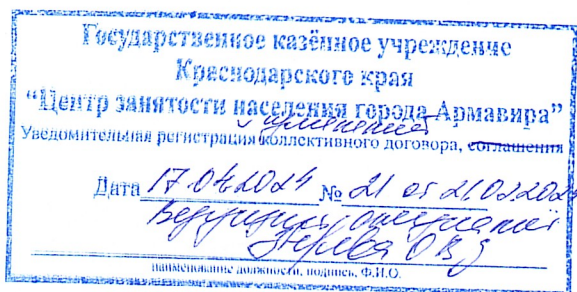 Государственное казённое учреждение
Краснодарского края
“Центр занятости населения города Армавира”
изменений
Уведомительная регистрация коллективного договора, соглашения
Дата 17.04.2024 № 21 от 21.02.2024
Ведущий специалист
О.В.
наименование должности, подпись, Ф.И.О.